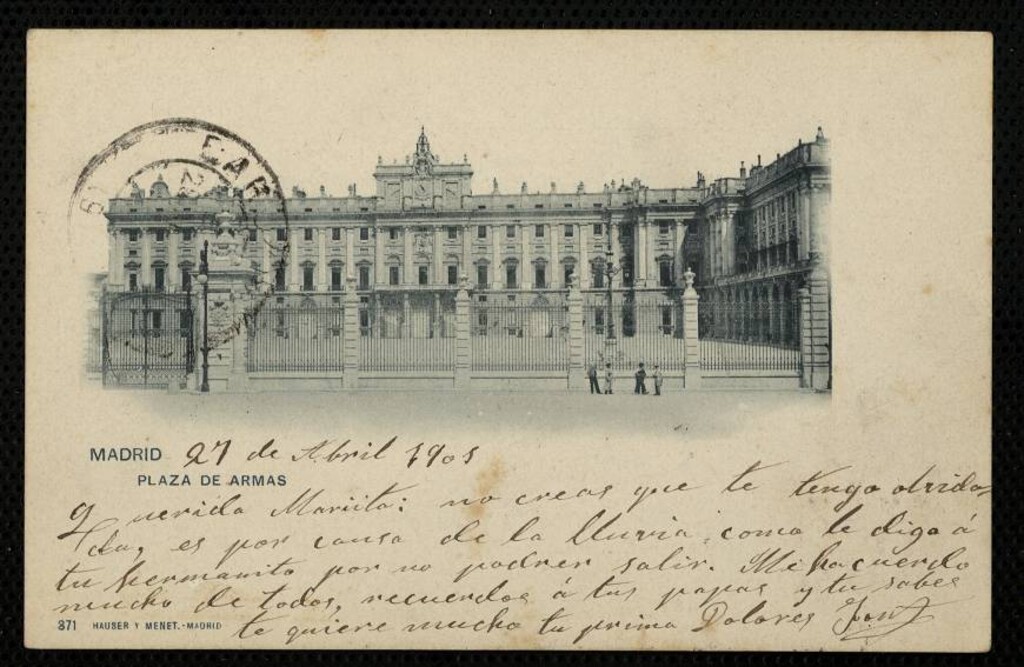 CAR
MADRID 27 de Abril 1901
PLAZA DE ARMAS
Querida Mariita: no creas que te tengo olvida-
da, es por causa de la lluvia, como le digo á
tu hermanito por no podrer salir. Me hacuerdo
mucho de todos, recuerdos á tus papas y tu sabes
te quiere mucho tu prima Dolores
371 HAUSER Y MENET.-MADRID